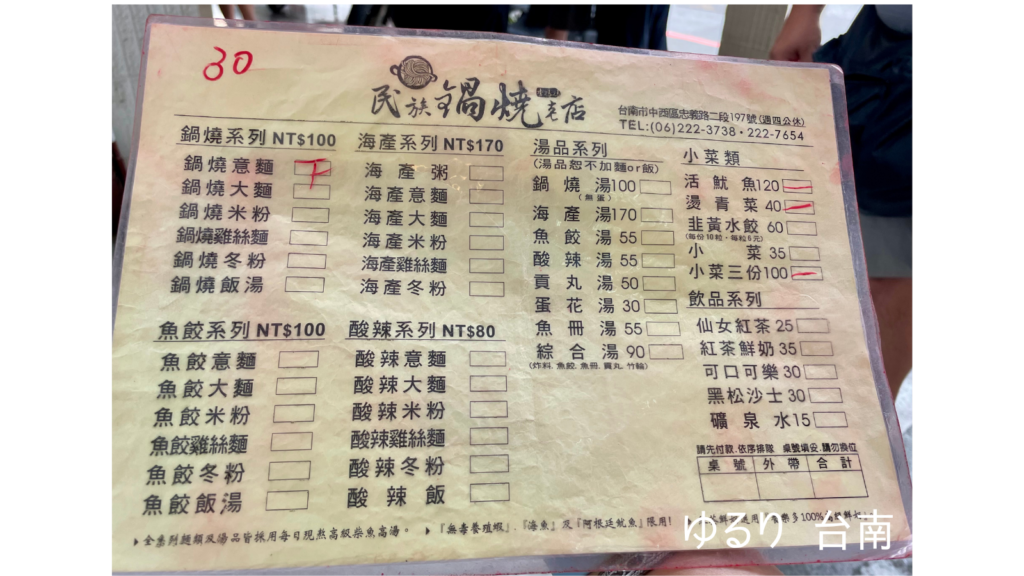 30
民族鍋燒老店
台南市中西區忠義路二段197號(週四公休)
TEL:(06)222-3738・222-7654
鍋燒系列 NT$100
鍋燒意麵 下
鍋燒大麵
鍋燒米粉
鍋燒雞絲麵
鍋燒冬粉
鍋燒飯湯
海產系列 NT$170
海產粥
海產意麵
海產大麵
海產米粉
海產雞絲麵
海產冬粉
魚餃系列 NT$100
魚餃意麵
魚餃大麵
魚餃米粉
魚餃雞絲麵
魚餃冬粉
魚餃飯湯
酸辣系列 NT$80
酸辣意麵
酸辣大麵
酸辣米粉
酸辣雞絲麵
酸辣冬粉
酸辣飯
湯品系列
(湯品恕不加麵or飯)
鍋燒湯100
(無蛋)
海產湯170
魚餃湯 55
酸辣湯 55
貢丸湯 50
蛋花湯 30
魚冊湯 55
綜合湯 90
(炸料.魚餃.魚冊.貢丸.竹輪)
小菜類
活魷魚120
燙青菜 40
韭黃水餃 60
(每份10粒・每粒6元)
小菜 35
小菜三份100
飲品系列
仙女紅茶 25
紅茶鮮奶 35
可口可樂 30
黑松沙士 30
礦泉水 15
請先付款.依序排隊 桌號填妥.請勿換位
桌號 外帶 合計
▸全系列麵類及湯品皆採用每日現熬高級柴魚高湯。 ▸『無毒養殖蝦』.『海魚』及『阿根廷魷魚』限用!
ゆるり 台南